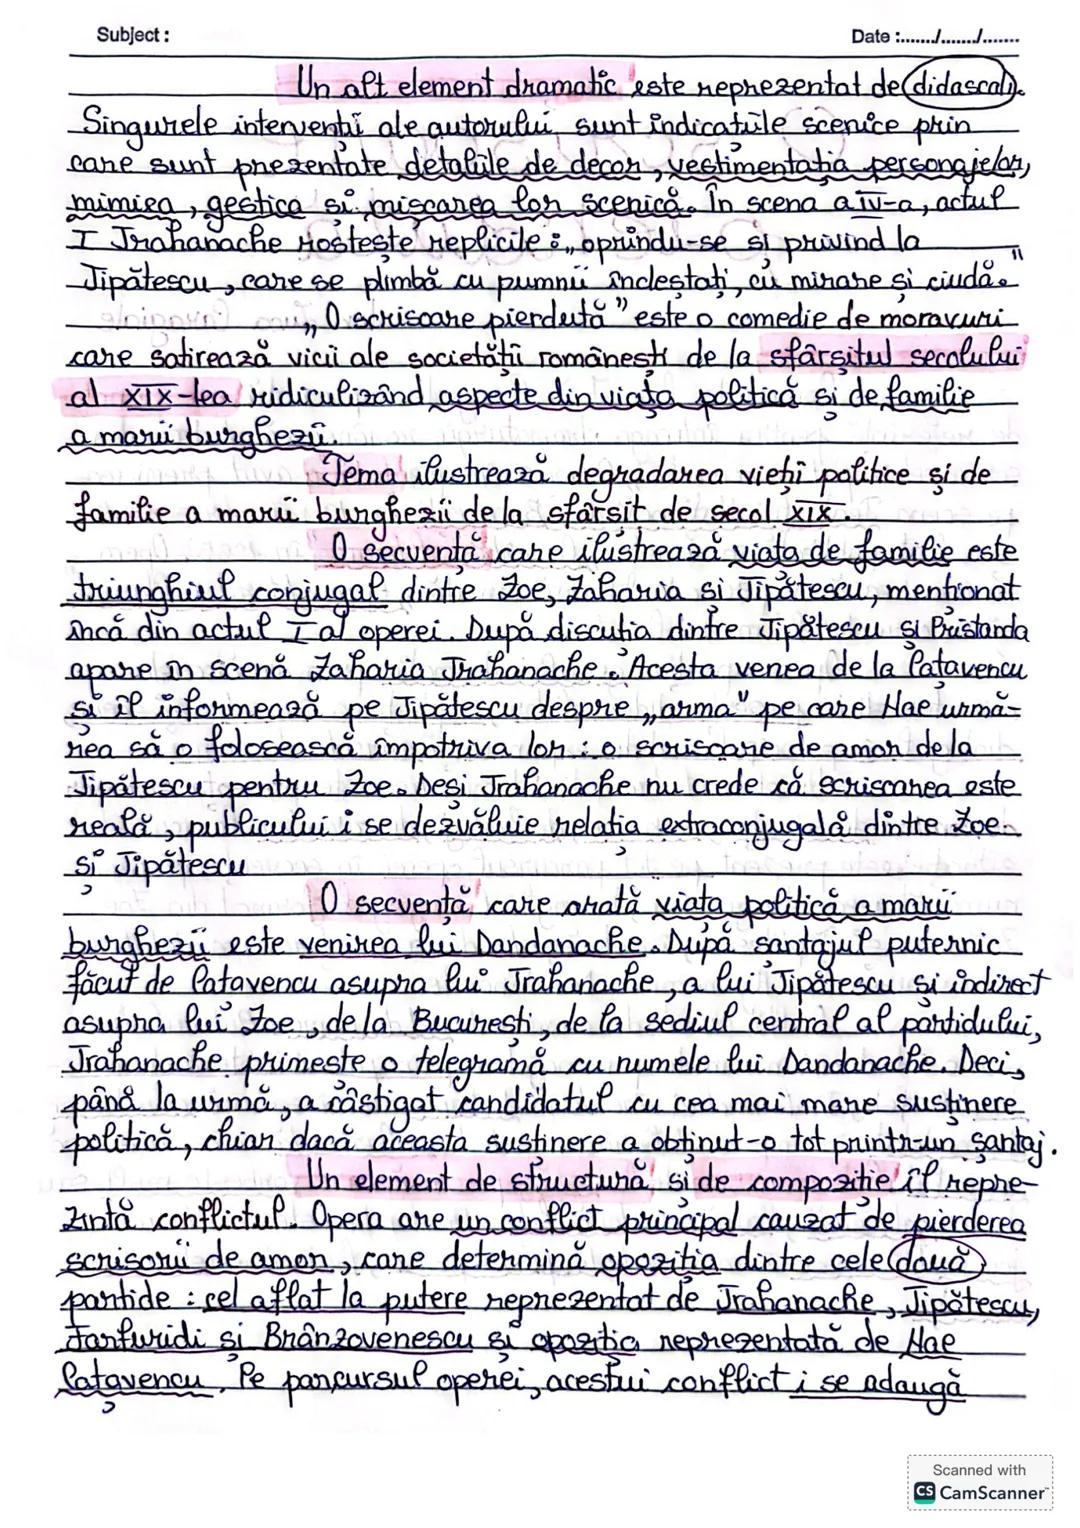 Subject :
Date :......./......./.......
Un alt element dramatic este reprezentat de didascalii.
Singurele intervenții ale autorului sunt indicațiile scenice prin
care sunt prezentate detaliile de decor, vestimentația personajelor,
mimica, gestica și mișcarea lor scenică. În scena a IV-a, actul
I Trahanache rostește replicile : „oprindu-se și privind la
Tipătescu, care se plimbă cu pumnii încleștați, cu mirare și ciudă."
„O scrisoare pierdută" este o comedie de moravuri
care satirează vicii ale societății românești de la sfârșitul secolului
al XIX-lea ridiculizând aspecte din viața politică și de familie
a marii burghezii.
Tema ilustrează degradarea vieții politice și de
familie a marii burghezii de la sfârșit de secol XIX.
O secvență care ilustrează viața de familie este
triunghiul conjugal dintre Zoe, Zaharia și Tipătescu, menționat
încă din actul I al operei. După discuția dintre Tipătescu și Pristanda
apare în scenă Zaharia Trahanache. Acesta venea de la Cațavencu
și îl informează pe Tipătescu despre „arma" pe care Nae urmă-
rea să o folosească împotriva lor : o scrisoare de amor de la
Tipătescu pentru Zoe. Deși Trahanache nu crede că scrisoarea este
reală, publicului i se dezvăluie relația extraconjugală dintre Zoe
și Tipătescu
O secvență care arată viața politică a marii
burghezii este venirea lui Dandanache. După șantajul puternic
făcut de Cațavencu asupra lui Trahanache, a lui Tipătescu și indirect
asupra lui Zoe, de la București, de la sediul central al partidului,
Trahanache primește o telegramă cu numele lui Dandanache. Deci,
până la urmă, a câștigat candidatul cu cea mai mare susținere
politică, chiar dacă aceasta susținere a obținut-o tot printr-un șantaj.
Un element de structură și de compoziție îl repre-
zintă conflictul. Opera are un conflict principal cauzat de pierderea
scrisorii de amor, care determină opoziția dintre cele două
partide : cel aflat la putere reprezentat de Trahanache, Tipătescu,
Farfuridi și Brânzovenescu și opoziția reprezentată de Nae
Cațavencu. Pe parcursul operei, acestui conflict i se adaugă
Scanned with
CS CamScanner